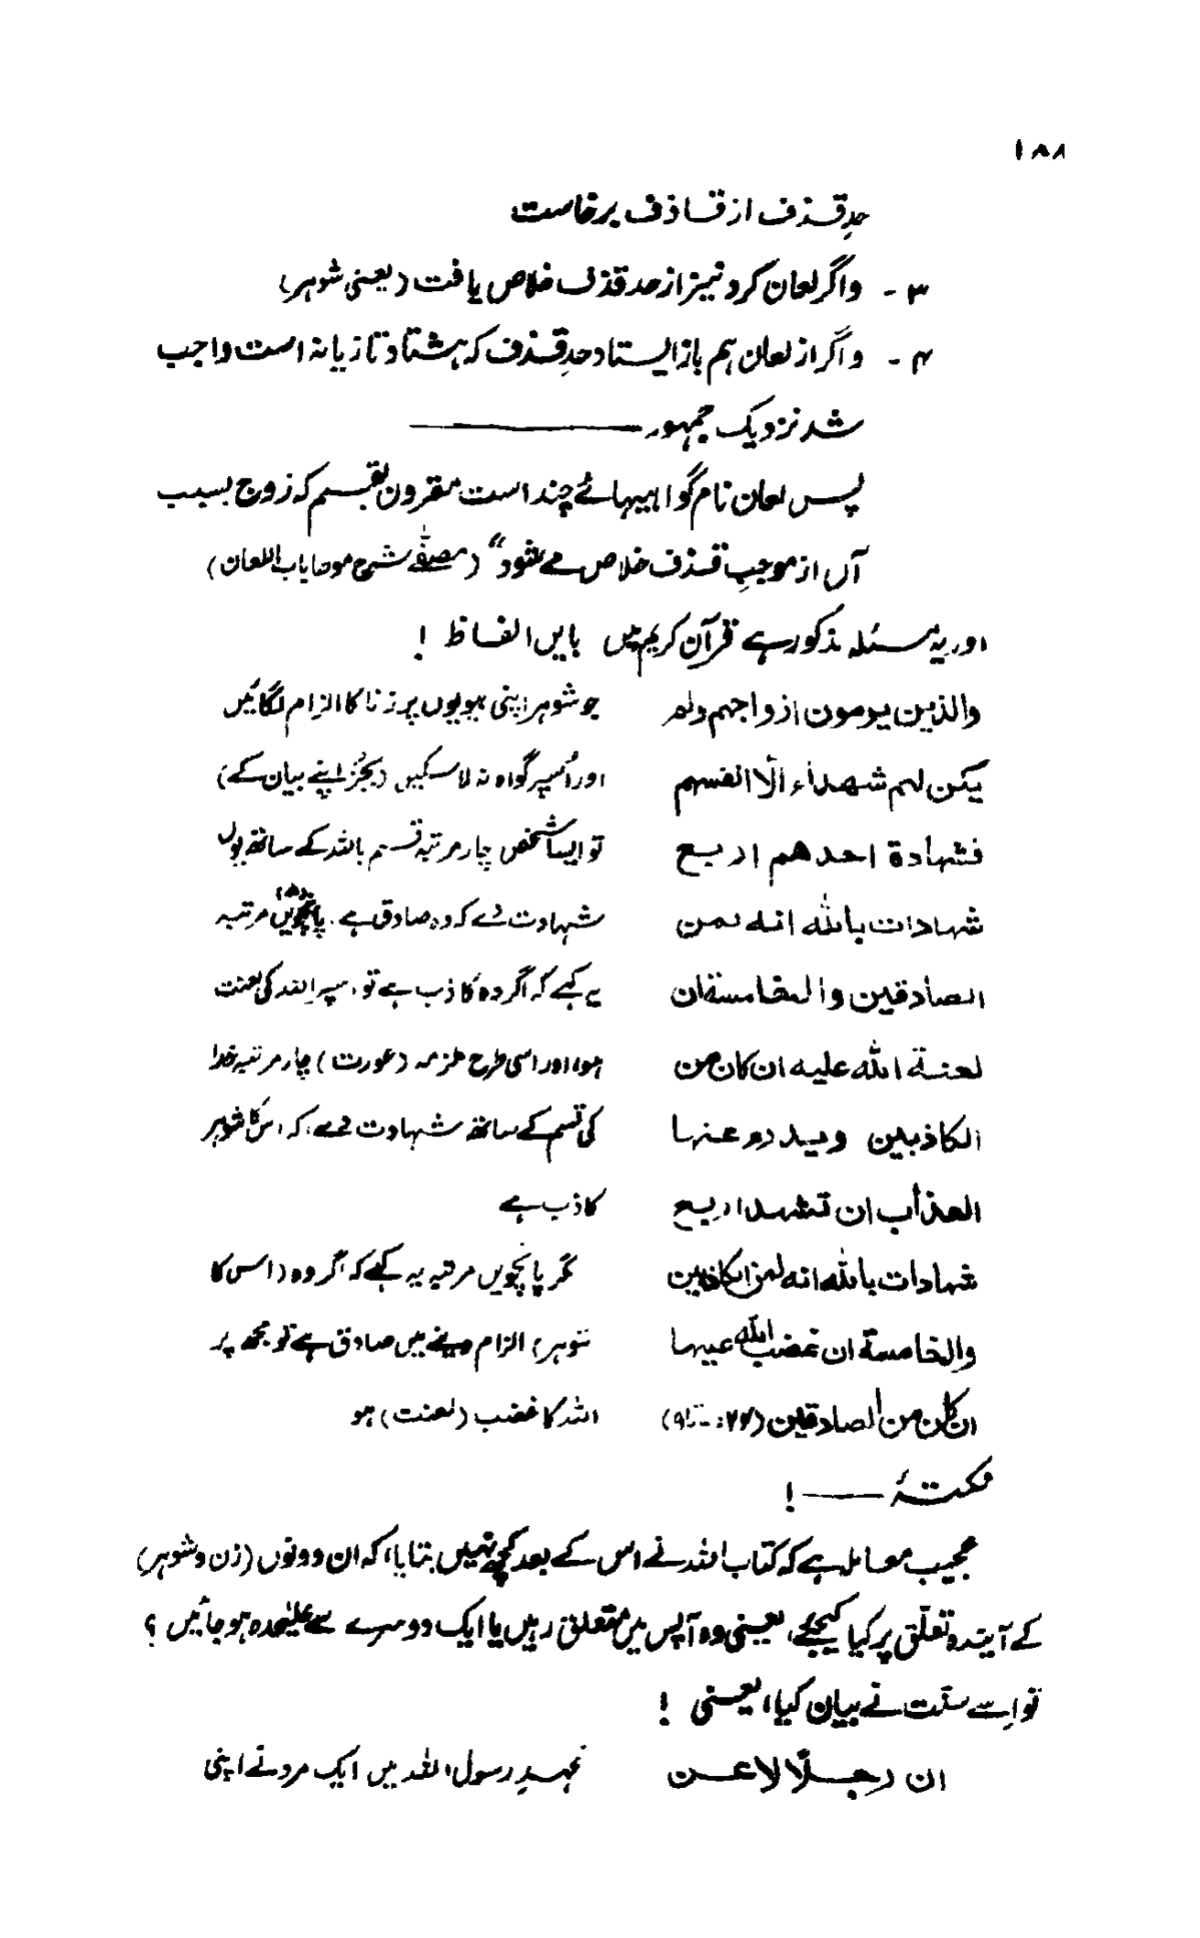 ۱۸۸
حدِ قذف از قاذف برخاست
۳ - واگر لعان کرد نیز از حد قذف خلاص یافت (یعنی شوہر)
۴ - واگر از لعان ہم باز ایستاد حدِ قذف کہ ہشتاد تازیانہ است واجب
شد نزدیک جمہور ———
پس لعان نام گواہیہائے چند است مقرون بقسم کہ زوج بسبب
آں از موجبِ قذف خلاص مے شود" (مصفّٰے شرح موطا باب اللعان)
اور یہ مسئلہ مذکور ہے قرآن کریم میں بایں الفاظ !
والذین یرمون ازواجہم ولم جو شوہر اپنی بیویوں پر زنا کا الزام لگائیں
یکن لہم شھداء الّا انفسہم اور اُسپر گواہ نہ لا سکیں (بجُز اپنے بیان کے)
فشہادۃ احدھم اربع تو ایسا شخص چار مرتبہ قسم باللہ کے ساتھ یوں
شہادات باللہ انہ لمن شہادت دے کہ وہ صادق ہے۔ پانچویں مرتبہ
الصادقین والخامسۃ ان یہ کہے کہ اگر وہ کاذب ہے تو اسپر اللہ کی لعنت
لعنۃ اللہ علیہ ان کان من ہو، اور اسی طرح ملزمہ (عورت) چار مرتبہ خدا
الکاذبین ویدرو عنہا کی قسم کے ساتھ شہادت دے، کہ اس کا شوہر
العذاب ان تشہد اربع کاذب ہے
شہادات باللہ انہ لمن الکاذبین مگر پانچویں مرتبہ یہ کہے کہ اگر وہ (اس کا
والخامسۃ ان غضب اللہ علیہا شوہر) الزام دینے میں صادق ہے تو مجھ پر
ان کان من الصادقین (۲۴: ۹) اللہ کا غضب (لعنت) ہو
نکتۂ —— !
عجیب معاملہ ہے کہ کتاب اللہ نے اس کے بعد کچھ نہیں بتایا، کہ ان دونوں (زن و شوہر)
کے آیندہ تعلّق پر کیا کیجئے، یعنی وہ آپس میں متعلق رہیں یا ایک دوسرے سے علیٰحدہ ہو جائیں ؟
تو اِسے سنّت نے بیان کیا، یعنی !
ان رجلًا لاعن عہدِ رسول اللہ میں ایک مرد نے اپنی